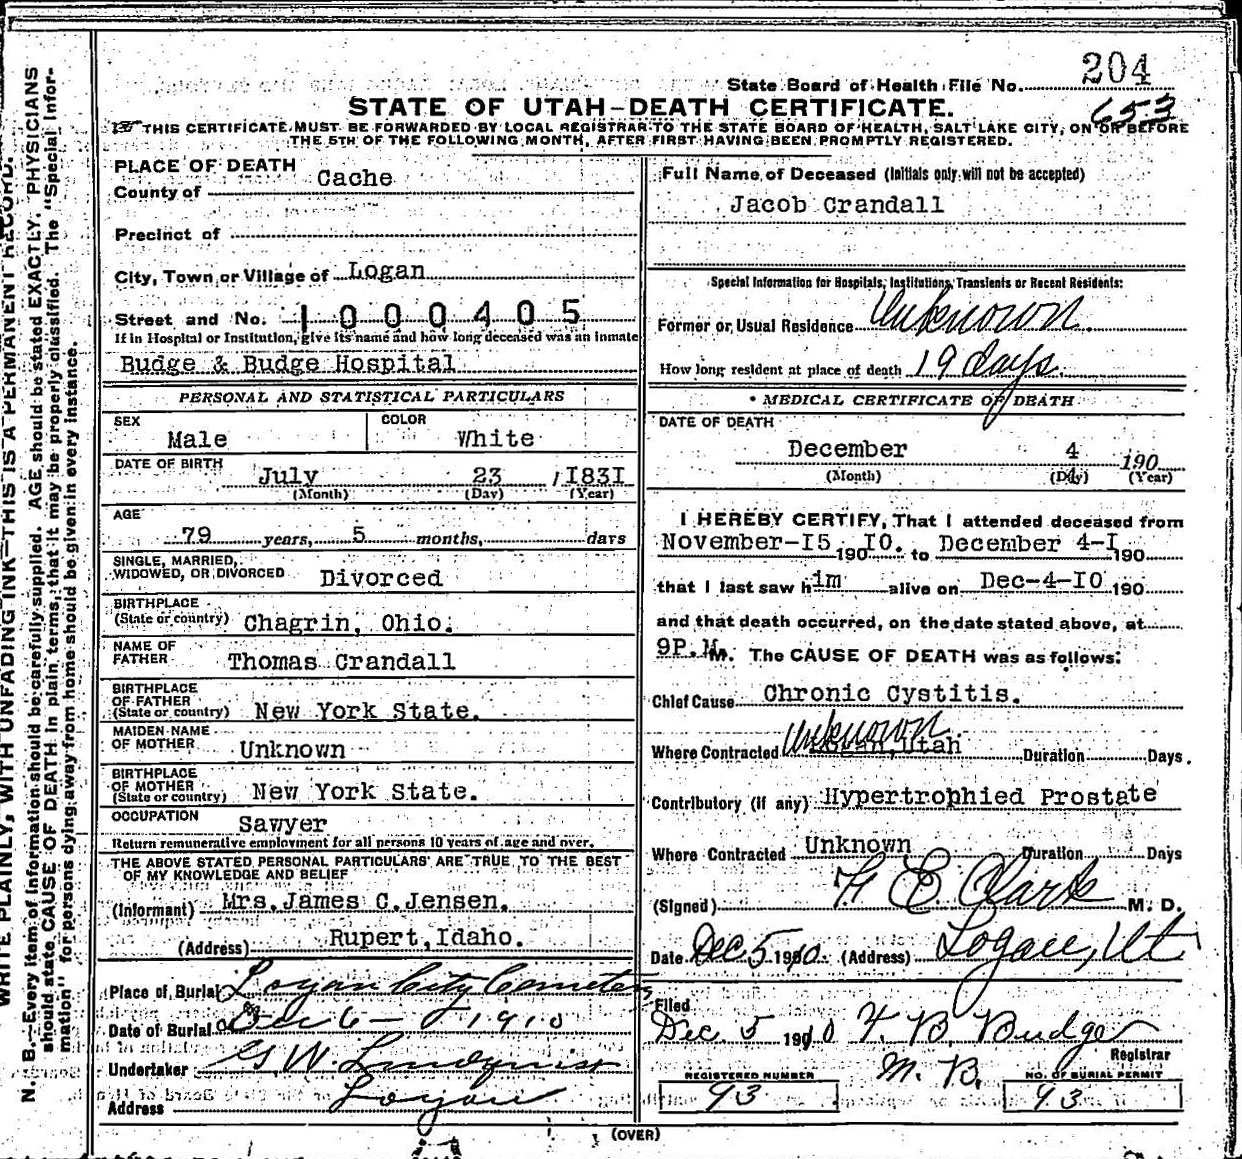 204
State Board of Health File No.
653
STATE OF UTAH—DEATH CERTIFICATE.
THIS CERTIFICATE MUST BE FORWARDED BY LOCAL REGISTRAR TO THE STATE BOARD OF HEALTH, SALT LAKE CITY, ON OR BEFORE
THE 5TH OF THE FOLLOWING MONTH, AFTER FIRST HAVING BEEN PROMPTLY REGISTERED.
WRITE PLAINLY, WITH UNFADING INK—THIS IS A PERMANENT RECORD.
N. B.—Every item of information should be carefully supplied. AGE should be stated EXACTLY. PHYSICIANS
should state CAUSE OF DEATH in plain terms, that it may be properly classified. The "Special Infor-
mation" for persons dying away from home should be given in every instance.
PLACE OF DEATH
County of Cache
Precinct of
City, Town or Village of Logan
Street and No. 1000405
If in Hospital or Institution, give its name and how long deceased was an inmate
Budge & Budge Hospital
PERSONAL AND STATISTICAL PARTICULARS
SEX COLOR
Male White
DATE OF BIRTH July 23 , 1831
(Month) (Day) (Year)
AGE
79 years, 5 months, days
SINGLE, MARRIED,
WIDOWED, OR DIVORCED Divorced
BIRTHPLACE
(State or country) Chagrin, Ohio.
NAME OF
FATHER Thomas Crandall
BIRTHPLACE
OF FATHER
(State or country) New York State.
MAIDEN NAME
OF MOTHER Unknown
BIRTHPLACE
OF MOTHER
(State or country) New York State.
OCCUPATION Sawyer
Return remunerative employment for all persons 10 years of age and over.
THE ABOVE STATED PERSONAL PARTICULARS ARE TRUE TO THE BEST
OF MY KNOWLEDGE AND BELIEF
(Informant) Mrs. James C. Jensen.
(Address) Rupert, Idaho.
Place of Burial Logan City Cemetery
Date of Burial Dec 6 — 1910
Undertaker G. W. Lindquist
Address Logan
Full Name of Deceased (Initials only will not be accepted)
Jacob Crandall
Special Information for Hospitals, Institutions, Transients or Recent Residents:
Former or Usual Residence Unknown
How long resident at place of death 19 days.
MEDICAL CERTIFICATE OF DEATH
DATE OF DEATH
December 4 190
(Month) (Day) (Year)
I HEREBY CERTIFY, That I attended deceased from
November-15 190 10. to December 4-1 190
that I last saw him alive on Dec-4-10 190
and that death occurred, on the date stated above, at
9P. M. The CAUSE OF DEATH was as follows:
Chief Cause Chronic Cystitis.
Where Contracted Unknown Logan, Utah Duration Days.
Contributory (if any) Hypertrophied Prostate
Where Contracted Unknown Duration Days
(Signed) H E Clark M. D.
Date Dec 5 1910. (Address) Logan, Ut
Filed
Dec. 5 1910 F. B. Budge
Registrar
M. B.
REGISTERED NUMBER NO. OF BURIAL PERMIT
93 93
(OVER)